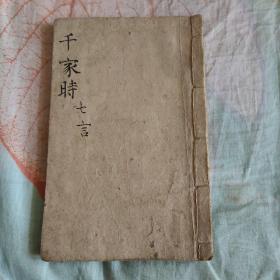 千家時七言